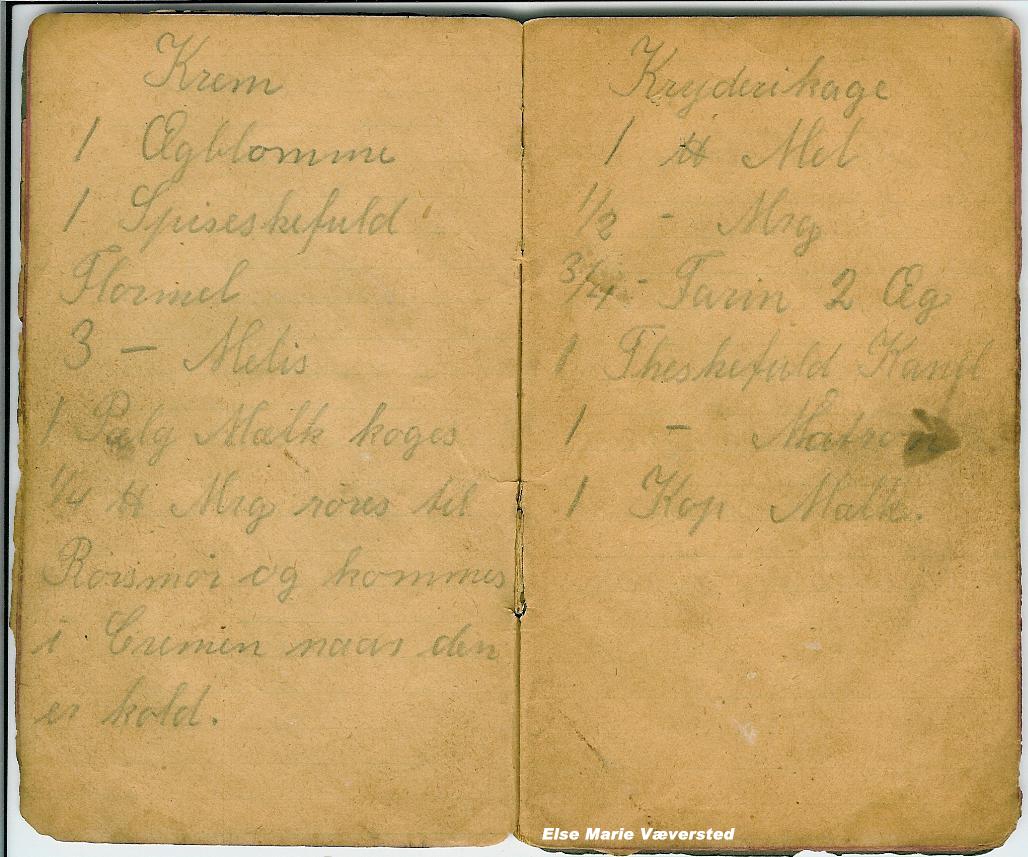 Krem
1 Ægblomme
1 Spiseskefuld
Flormel
3 – Melis
1 Pælg Mælk koges
1/4 ℔ Mrg röres til
Rörsmör og kommes
i Cremen naar den
er kold.
Kryderikage
1 ℔ Mel
1/2 - Mrg
3/4 - Farin 2 Æg
1 Theskefuld Kanel
1 – Natron
1 Kop Mælk.
Else Marie Væversted